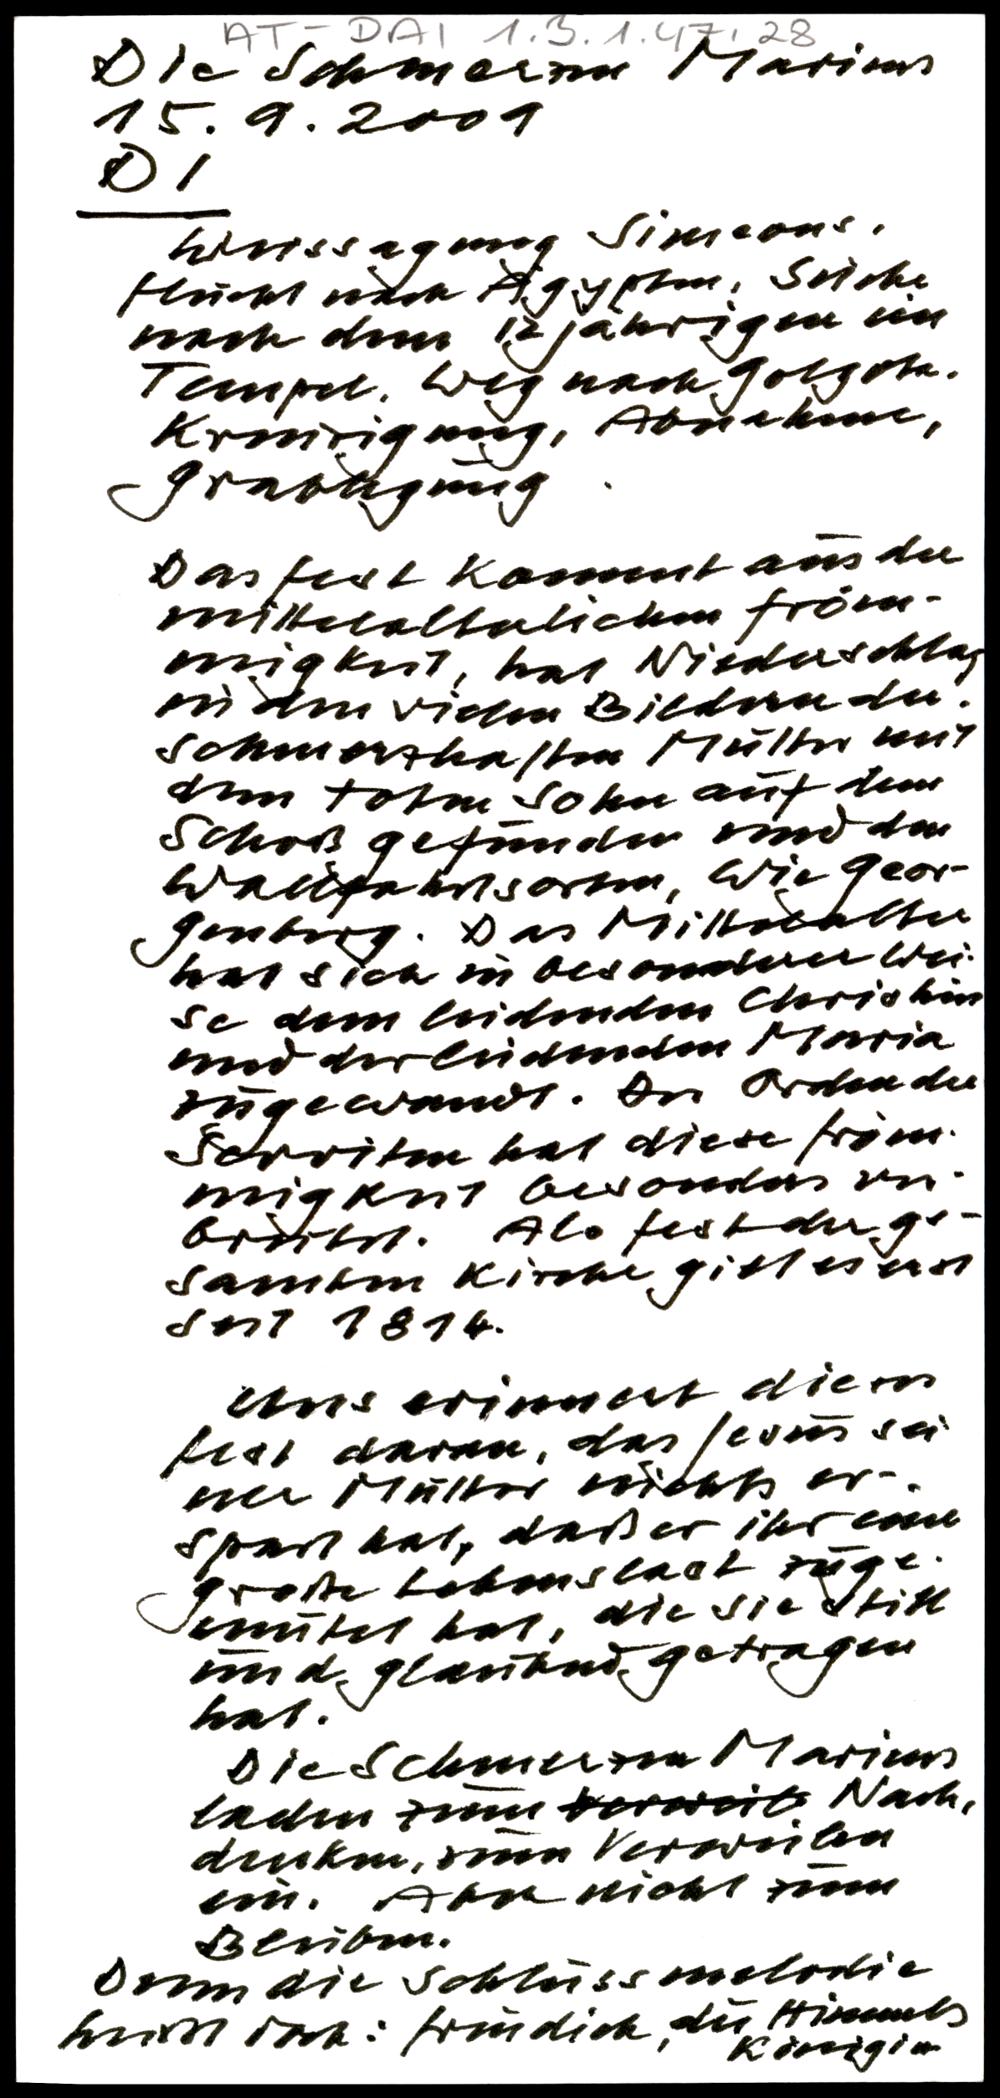 AT-DAI 1.3.1.47.28
Die Schmerzen Mariens
15. 9. 2009
DI
Weissagung Simeons,
Flucht nach Ägypten, Suche
nach dem 12jährigen im
Tempel, Weg nach Golgota.
Kreuzigung, Abnahme,
Grablegung.
Das Fest kommt aus der
mittelalterlichen Fröm-
migkeit, hat Niederschlag
in den vielen Bildern der
schmerzhaften Mutter mit
dem toten Sohn auf dem
Schoß gefunden und den
Wallfahrtsorten, wie Geor-
genberg. Das Mittelalter
hat sich in besonderer Wei-
se dem leidenden Christus
und der leidenden Maria
zugewandt. Der Orden der
Serviten hat diese Fröm-
migkeit besonders ver-
breitet. Als Fest der ge-
samten Kirche gilt es erst
seit 1814.
Uns erinnert dieses
Fest daran, das Jesus sei
ner Mutter nichts er-
spart hat, daß er ihr eine
große Lebenslast zuge-
mutet hat, die sie still
und glaubend getragen
hat.
Die Schmerzen Mariens
laden zum verweile Nach-
denken, zum Verweilen
ein. Aber nicht zum
Bleiben.
Denn die Schlussmelodie
heißt doch: freu dich, du Himmels
Königin